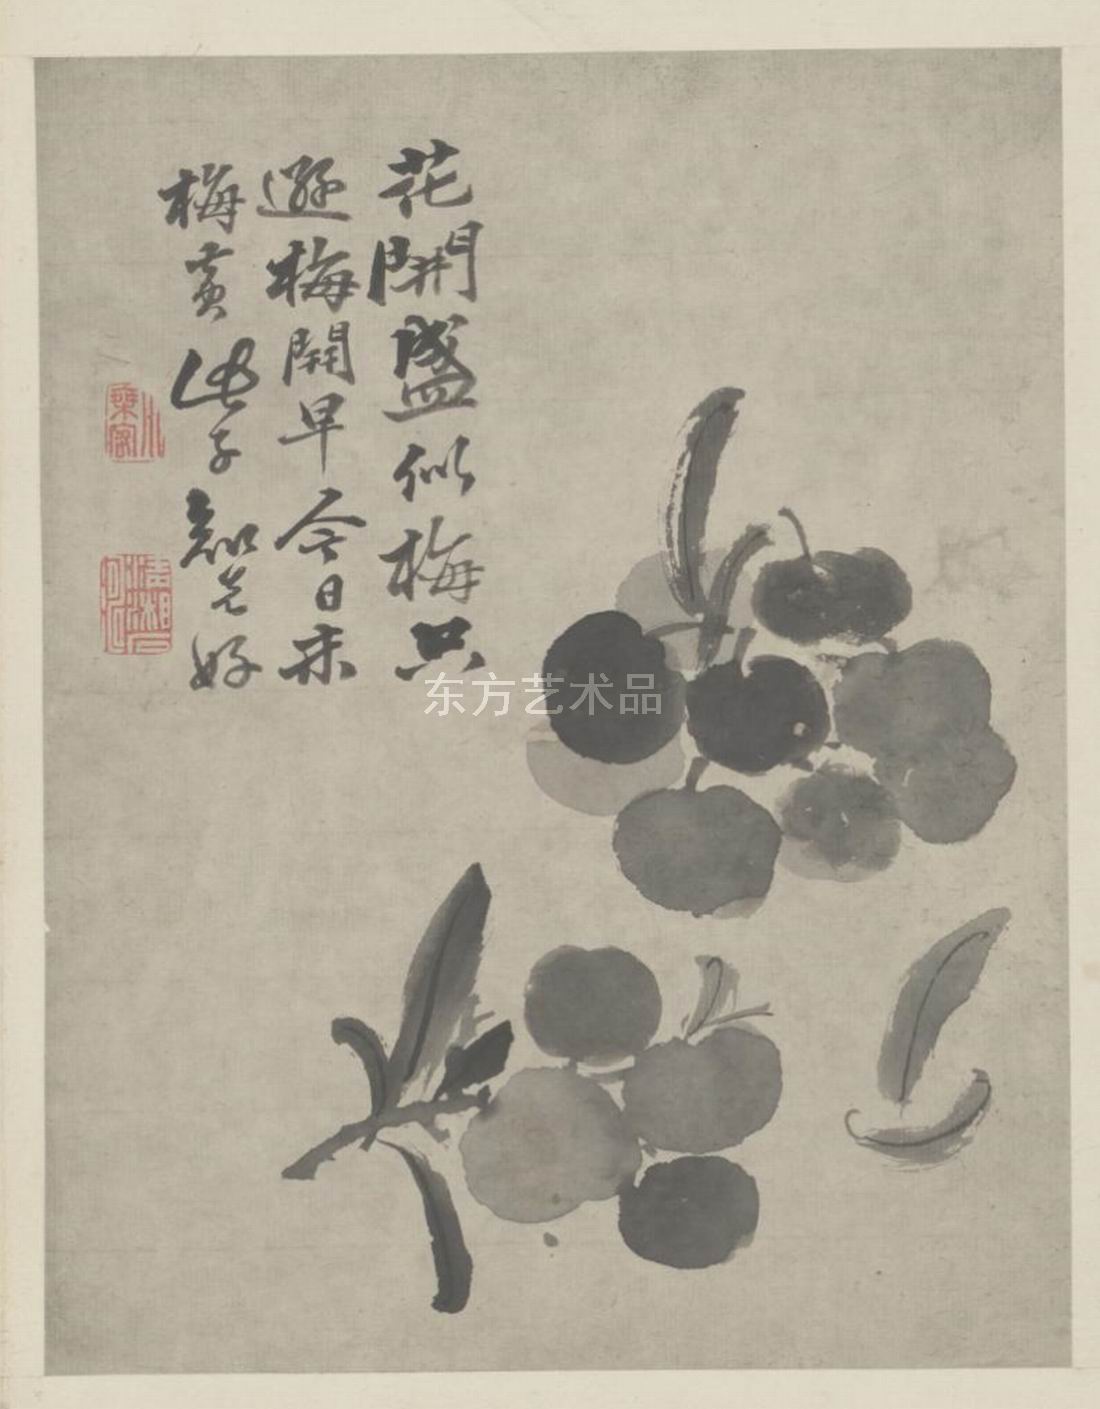 花開盛似梅只
遜梅開早今日未
梅黃此子知先好
东方艺术品